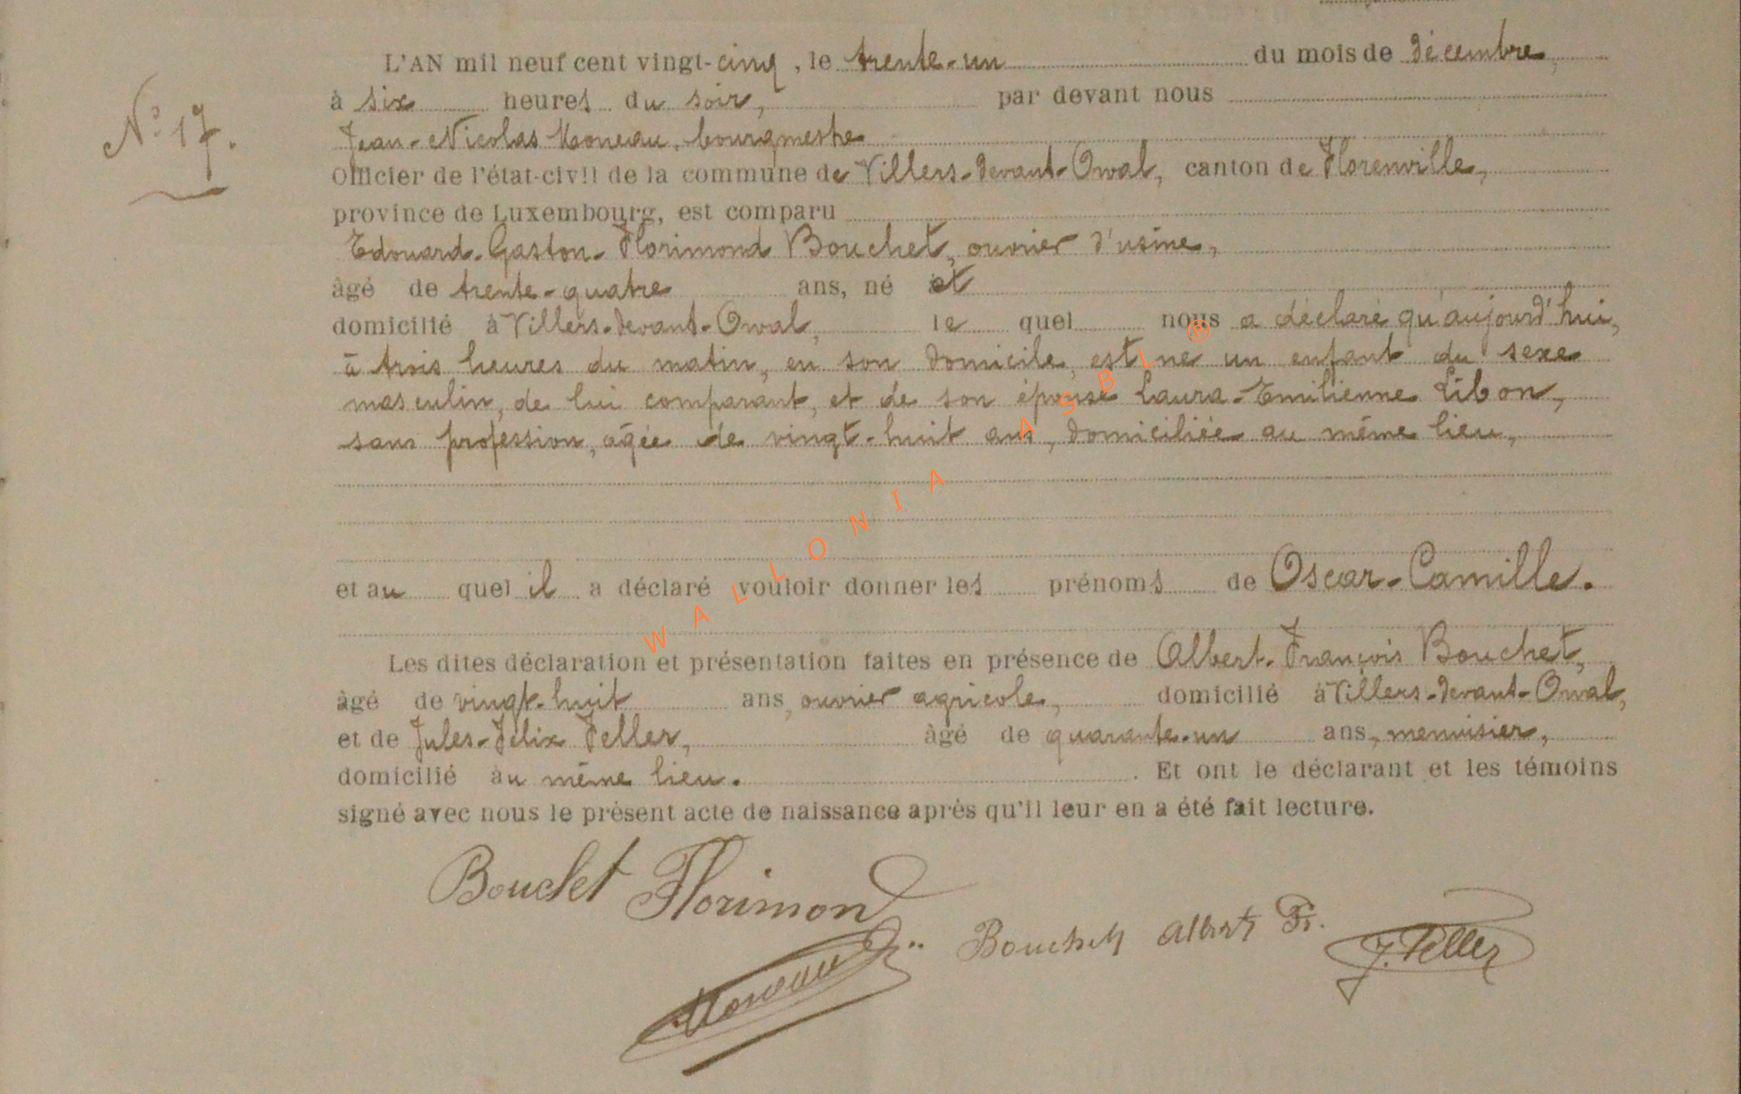 L'AN mil neuf cent vingt-cinq, le trente-un du mois de décembre,
à six heures du soir, par devant nous
N° 17.
Jean-Nicolas bourgmestre
Officier de l'état-civil de la commune de Villers-devant-Orval, canton de Florenville,
province de Luxembourg, est comparu
Edouard-Gaston-Florimond Bouchet, ouvrier d'usine,
âgé de trente-quatre ans, né et
domicilié à Villers-devant-Orval, le quel nous a déclaré qu'aujourd'hui,
à trois heures du matin, en son domicile, est né un enfant du sexe
masculin, de lui comparant, et de son épouse Laura-Emilienne Libon,
sans profession, agée de vingt-huit ans, domiciliée au même lieu,
et au quel il a déclaré vouloir donner les prénoms de Oscar-Camille.
Les dites déclaration et présentation faites en présence de Albert-François Bouchet,
âgé de vingt-huit ans, ouvrier agricole, domicilié à Villers-devant-Orval,
et de Jules-Félix Feller, âgé de quarante-un ans, menuisier,
domicilié au même lieu. Et ont le déclarant et les témoins
signé avec nous le présent acte de naissance après qu'il leur en a été fait lecture.
Bouchet Florimond
Bouchet Albert Fr.
J. Feller
WALLONIA ASBL ®